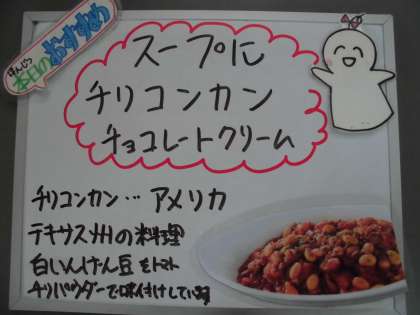 ほんじつ
本日のおすすめ
スープに
チリコンカン
チョコレートクリーム
チリコンカン… アメリカ
テキサス州の料理
白いんげん豆をトマト
チリパウダーで味付けしている